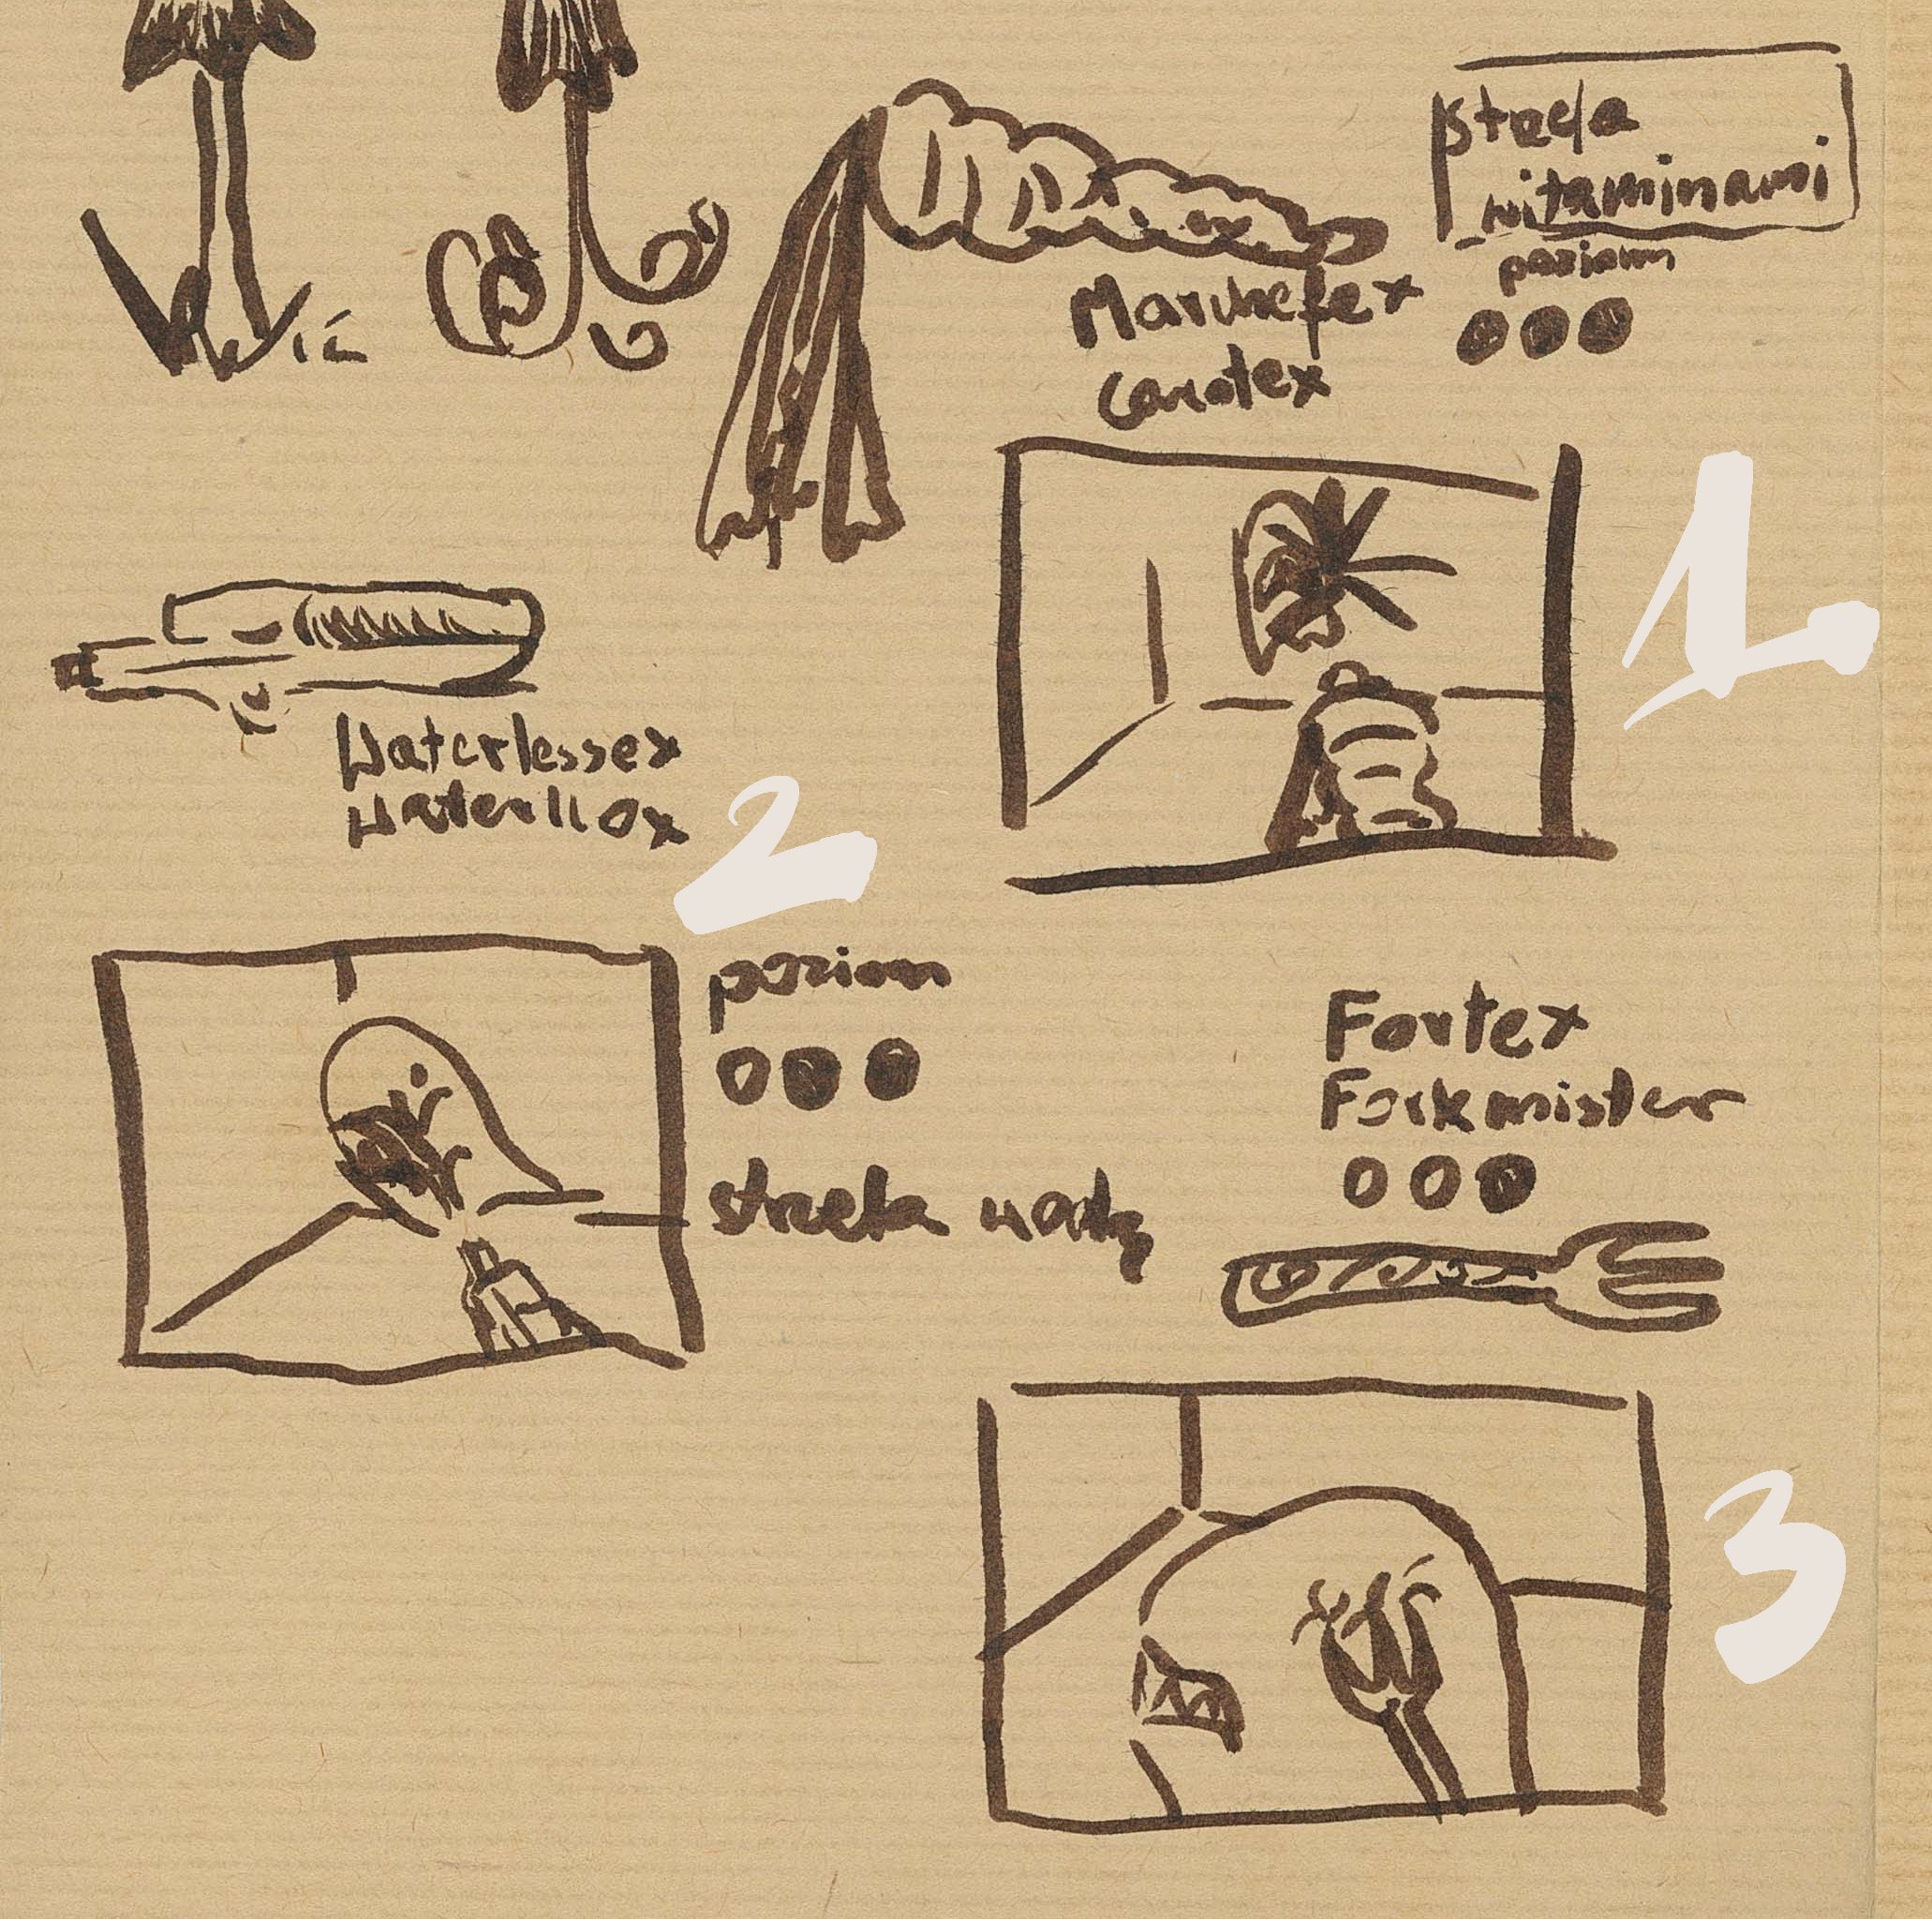 strzela
witaminami
poziom
Marchefex
Carotex
1.
Waterlessex
Waterllox
2
poziom
strzela wodą
Fortex
Forkmister
3